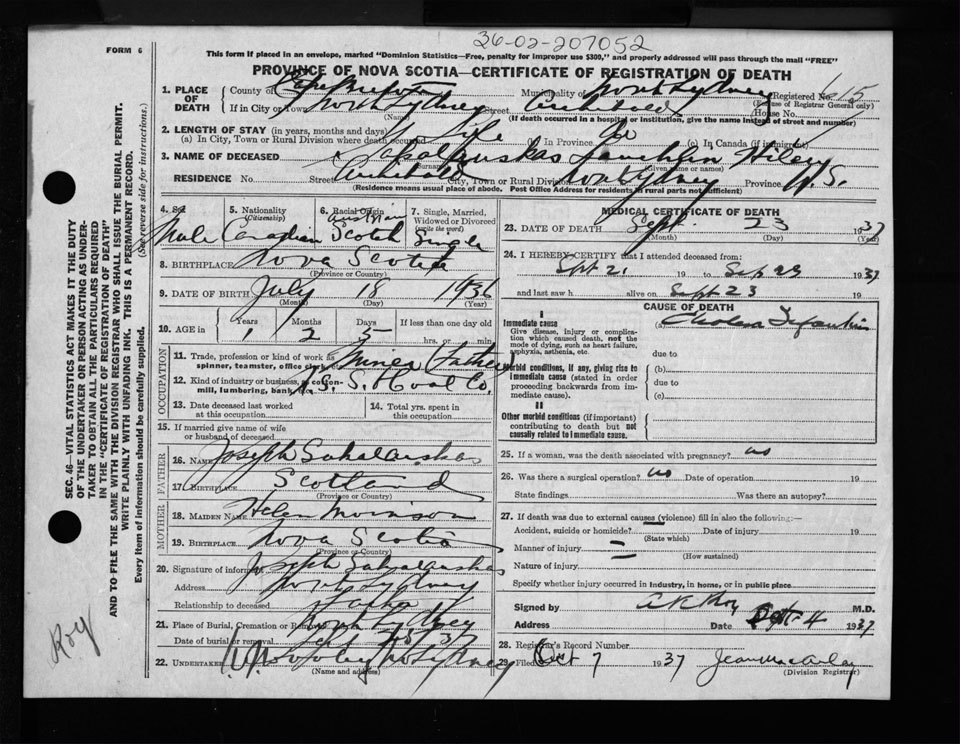 36-02-207052
FORM 6
This form if placed in an envelope, marked "Dominion Statistics—Free, penalty for improper use $300," and properly addressed will pass through the mail "FREE"
PROVINCE OF NOVA SCOTIA—CERTIFICATE OF REGISTRATION OF DEATH
1. PLACE OF DEATH County of Cape Breton Municipality of North Sydney Registered No. 615
(For use of Registrar General only)
If in City or Town North Sydney Street Archibald House No.
(Name) (If death occurred in a hospital or institution, give the name instead of street and number)
2. LENGTH OF STAY (in years, months and days)
(a) In City, Town or Rural Division where death occurred Life (b) In Province (c) In Canada (if immigrant)
3. NAME OF DECEASED
(Given name or names)
RESIDENCE No. Street Archibald City, Town or Rural Division North Sydney Province N.S.
(Residence means usual place of abode. Post Office Address for residents in rural parts not sufficient)
4. Sex Male
5. Nationality (Citizenship) Canadian
6. Racial Origin Scotch
7. Single, Married, Widowed or Divorced (write the word) Single
8. BIRTHPLACE Nova Scotia
(Province or Country)
9. DATE OF BIRTH July 18 1936
(Month) (Day) (Year)
10. AGE in Years Months Days If less than one day old
1 2 5 hrs. or min.
OCCUPATION
11. Trade, profession or kind of work as spinner, teamster, office clerk, Miner (Father)
12. Kind of industry or business, as cotton-mill, lumbering, bank, N.S.S. & Coal Co.
13. Date deceased last worked at this occupation
14. Total yrs. spent in this occupation
15. If married give name of wife or husband of deceased
FATHER
16. NAME Joseph
17. BIRTHPLACE Scotland
(Province or Country)
MOTHER
18. MAIDEN NAME Helen Morrison
19. BIRTHPLACE Nova Scotia
(Province or Country)
20. Signature of informant Joseph
Address North Sydney
Relationship to deceased Father
21. Place of Burial, Cremation or Removal North Sydney
Date of burial or removal Sept 37
22. UNDERTAKER
(Name and address)
MEDICAL CERTIFICATE OF DEATH
23. DATE OF DEATH Sept. 23 1937
(Month) (Day) (Year)
24. I HEREBY CERTIFY that I attended deceased from:
Spt 21 19 to Sep 23 1937
and last saw h alive on Sept 23 19
CAUSE OF DEATH
I
Immediate cause (a) Cholera Infantum
Give disease, injury or complication which caused death, not the mode of dying, such as heart failure, asphyxia, asthenia, etc.
due to
Morbid conditions, if any, giving rise to immediate cause (stated in order proceeding backwards from immediate cause).
(b)
due to
(c)
II
Other morbid conditions (if important) contributing to death but not causally related to immediate cause.
25. If a woman, was the death associated with pregnancy? no
26. Was there a surgical operation? no Date of operation 19
State findings Was there an autopsy?
27. If death was due to external causes (violence) fill in also the following:—
Accident, suicide or homicide? Date of injury 19
(State which)
Manner of injury
(How sustained)
Nature of injury
Specify whether injury occurred in Industry, in home, or in public place
Signed by M.D.
Address Date 4 1937
28. Registrar's Record Number
29. Filed Oct 7 1937
(Division Registrar)
SEC. 46—VITAL STATISTICS ACT MAKES IT THE DUTY
OF THE UNDERTAKER OR PERSON ACTING AS UNDER-
TAKER TO OBTAIN ALL THE PARTICULARS REQUIRED
IN THE "CERTIFICATE OF REGISTRATION OF DEATH"
AND TO FILE THE SAME WITH THE DIVISION REGISTRAR WHO SHALL ISSUE THE BURIAL PERMIT.
WRITE PLAINLY WITH UNFADING INK. THIS IS A PERMANENT RECORD.
Every item of information should be carefully supplied. (See reverse side for instructions.)
Roy